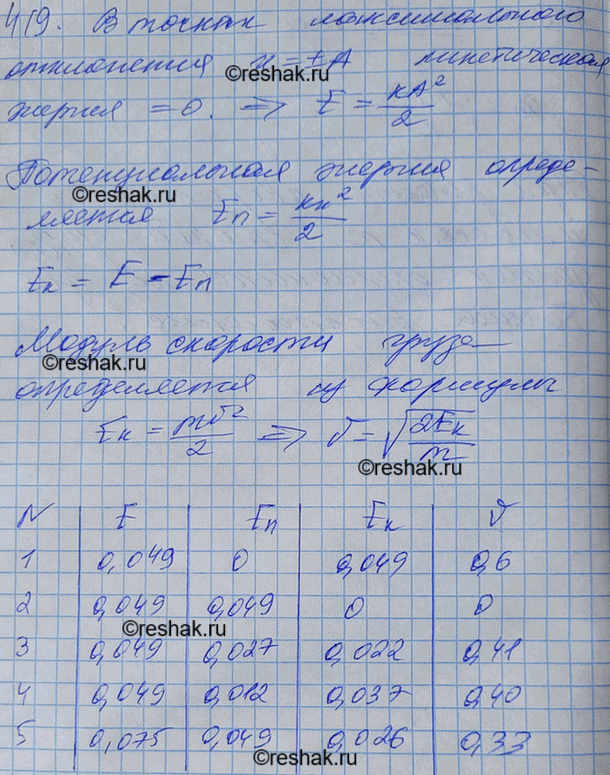 419. В точках максимального
отклонения x = ±A кинетическая
энергия = 0. => E = kA²/2
Потенциальная энергия опреде-
©reshak.ru
ляется Eп = kx²/2
Eк = E - Eп
Модуль скорости груза
©reshak.ru
определяется из формулы
Eк = mv²/2 => v = √(2Eк/m)
©reshak.ru
N E Eп Eк v
1 0,049 0 0,049 0,6
2 0,049 0,049 0 0
©reshak.ru
3 0,049 0,027 0,022 0,41
4 0,049 0,012 0,037 0,40
5 0,075 0,049 0,026 0,33
©reshak.ru